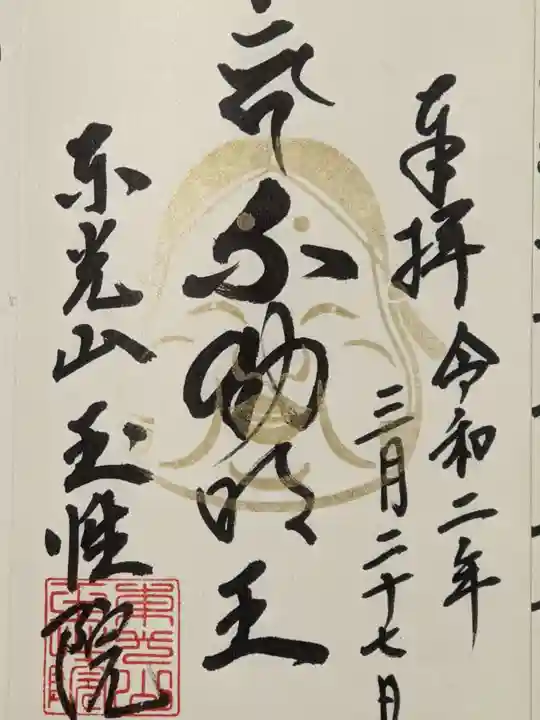 奉拝 令和二年
三月二十七日
不動明王
東光山 玉性院